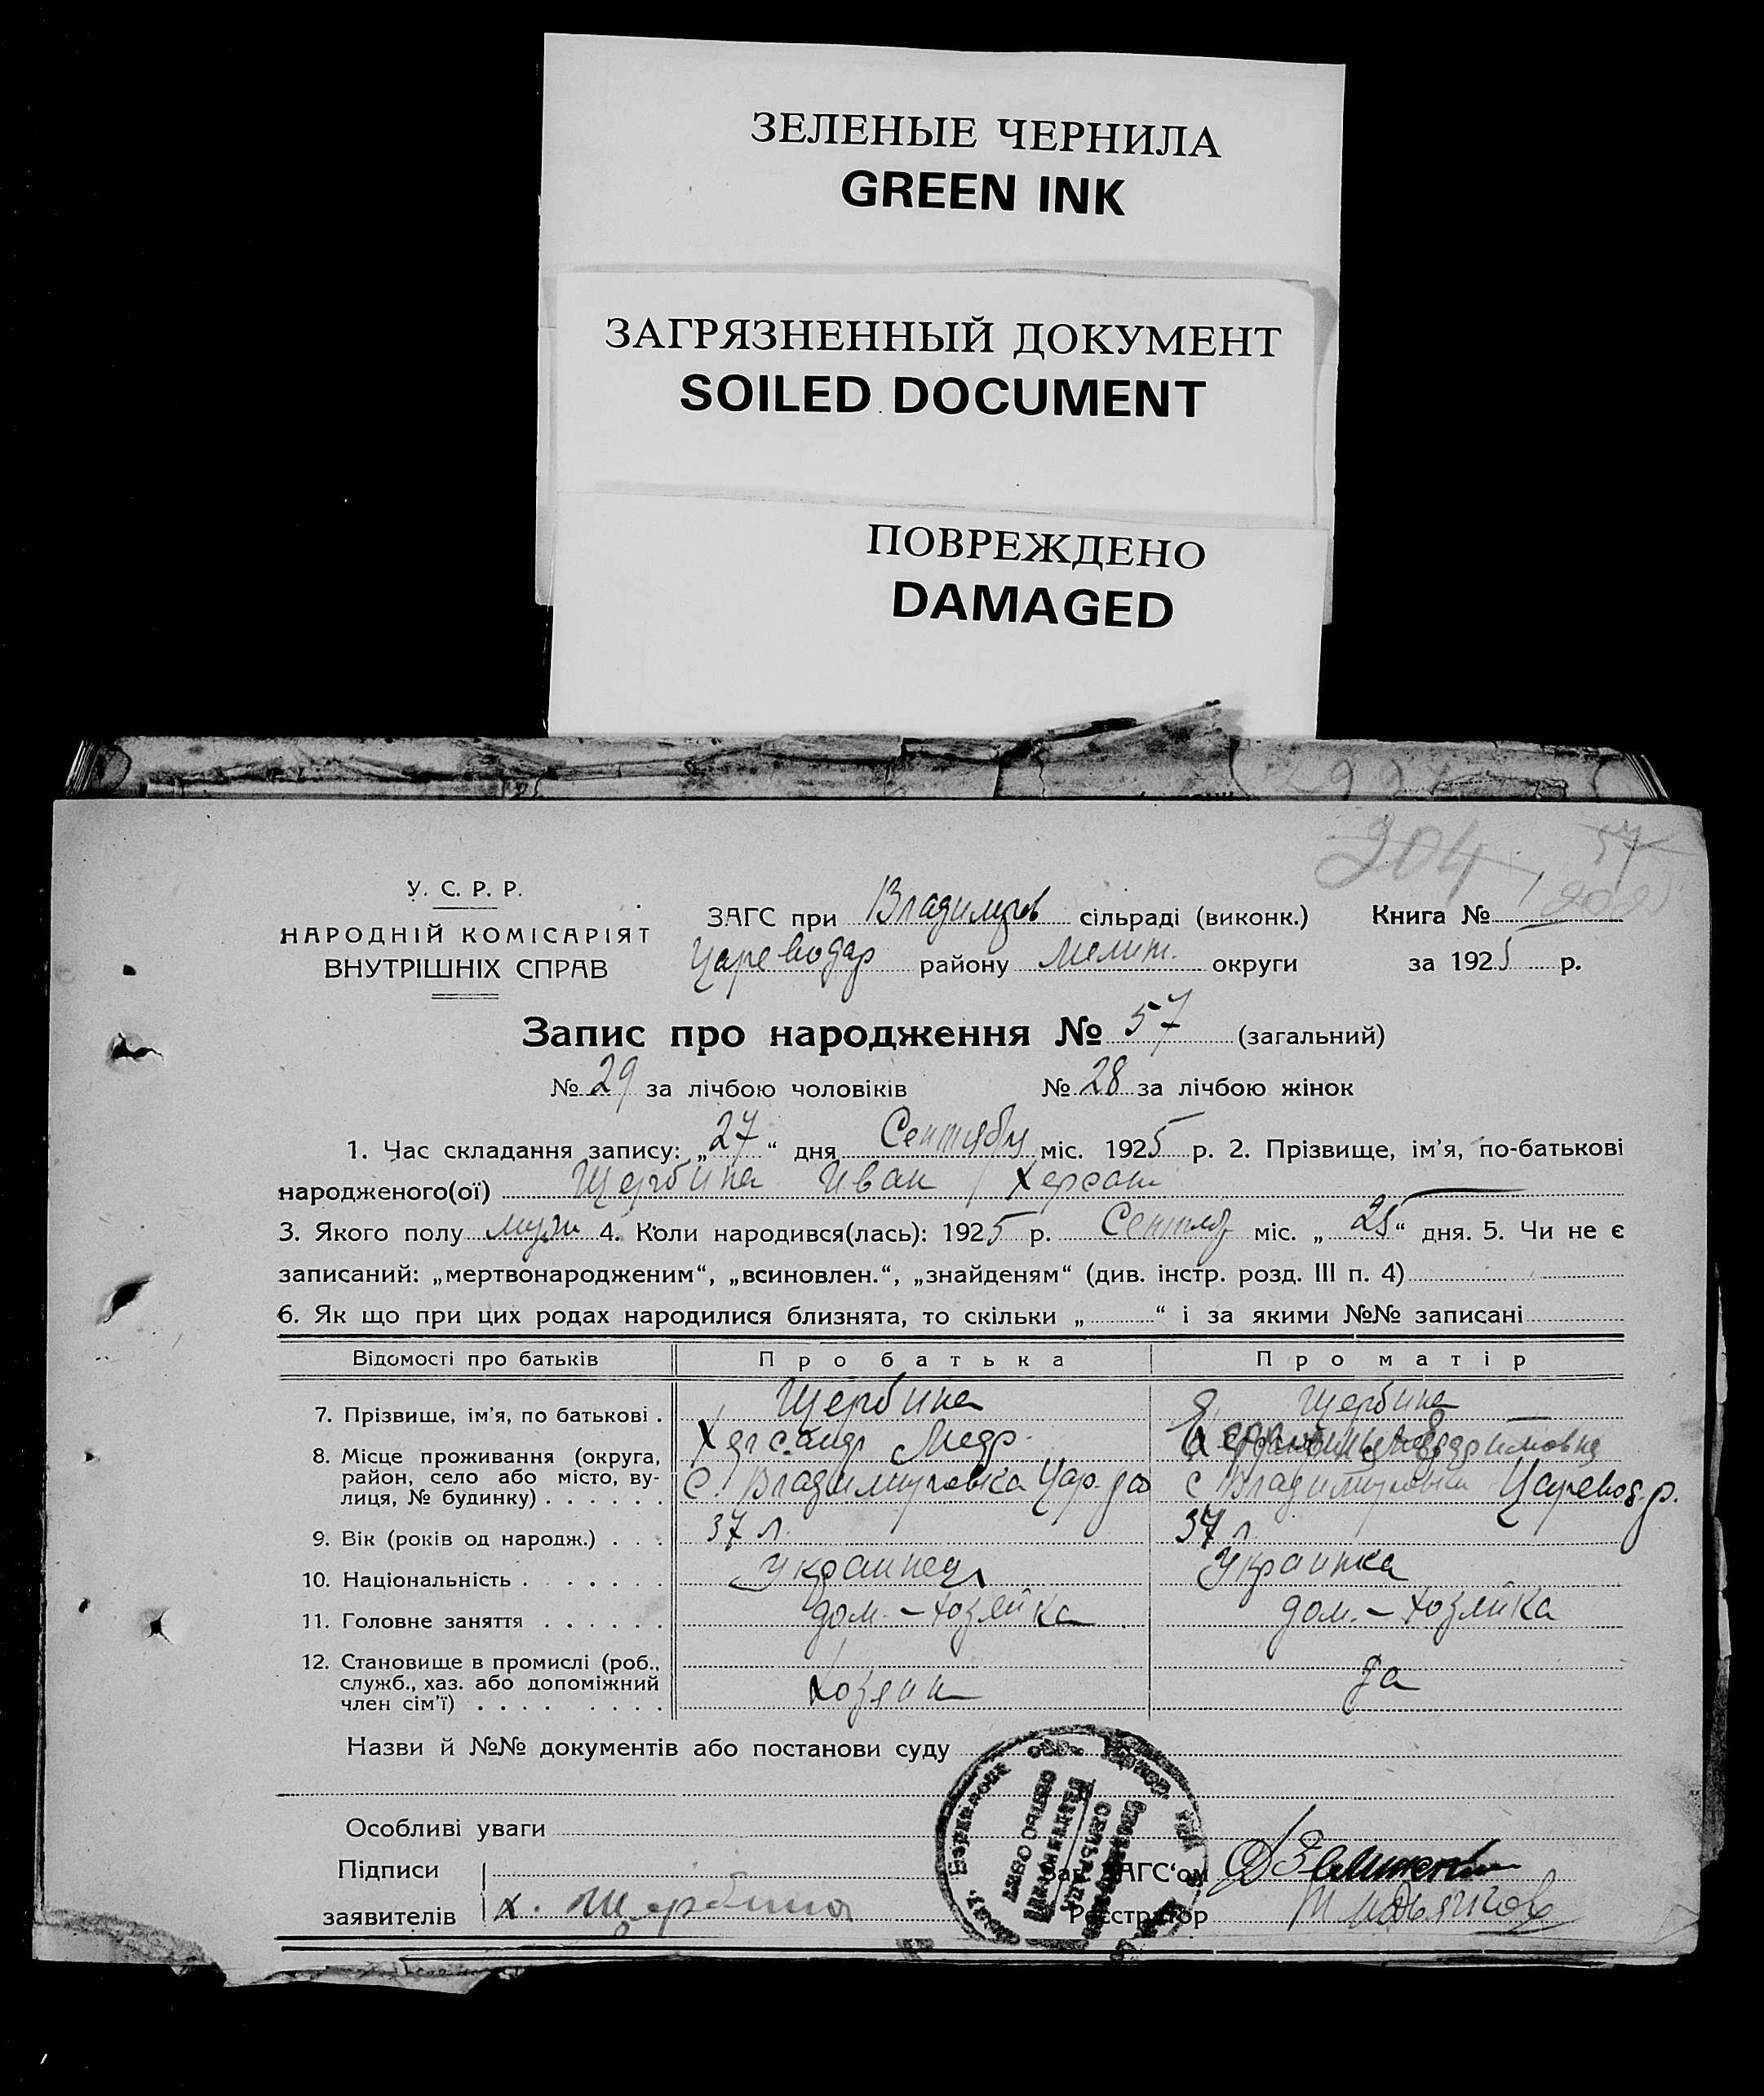 ЗЕЛЕНЫЕ ЧЕРНИЛА
GREEN INK
ЗАГРЯЗНЕННЫЙ ДОКУМЕНТ
SOILED DOCUMENT
ПОВРЕЖДЕНО
DAMAGED
204 57
У. С. Р. Р.
НАРОДНІЙ КОМІСАРІЯТ
ВНУТРІШНІХ СПРАВ
ЗАГС при Владимиров сільраді (виконк.) Книга №
Цареводар району Мелит. округи за 1925 р.
Запис про народження № 57 (загальний)
№ 29 за лічбою чоловіків № 28 за лічбою жінок
1. Час складання запису: „27“ дня Сентября міс. 1925 р. 2. Прізвище, ім’я, по-батькові
народженого(ої) Щербина Иван Херсан
3. Якого полу муж 4. Коли народився(лась): 1925 р. Сентяб міс. „25“ дня. 5. Чи не є
записаний: „мертвонародженим“, „всиновлен.“, „знайденям“ (див. інстр. розд. III п. 4)
6. Як що при цих родах народилися близнята, то скільки „ “ і за якими №№ записані
Відомості про батьків Про батька Про матір
7. Прізвище, ім’я, по батькові . Щербина Щербина
8. Місце проживання (округа, район, село або місто, вулиця, № будинку) . . . . . . С. Владимировка Цар. с Владимировка Царевод. р.
9. Вік (років од народж.) . . . 37 л. 37 л
10. Національність . . . . . . . Украинец Украинка
11. Головне заняття . . . . . . дом. – хозяйка дом. – хозяйка
12. Становище в промислі (роб., служб., хаз. або допоміжний член сім’ї) . . . . . . . . Хозяин да
Назви й №№ документів або постанови суду
Особливі уваги
Підписи Зав. ЗАГС‘ом
заявителів Х. Щербина Реєстратор